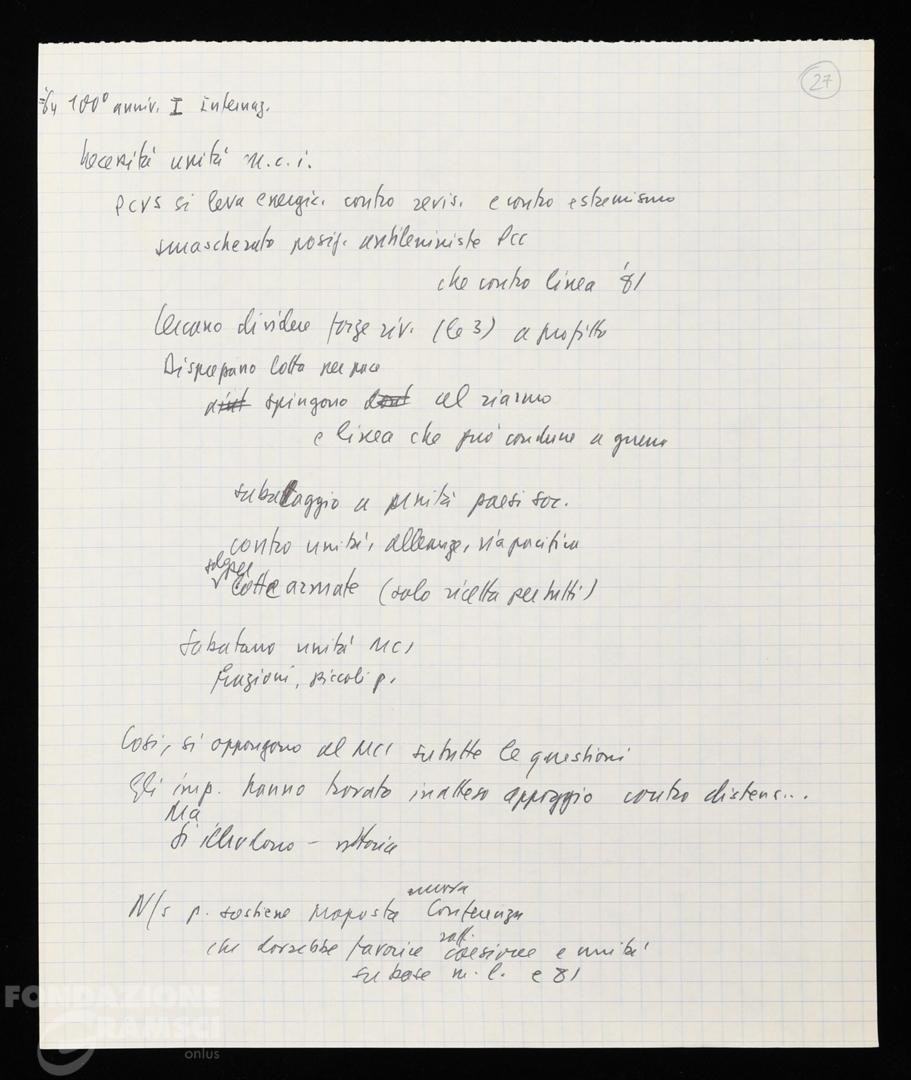 27
'64 100° anniv. I internaz.
Necessità unità m.c.i.
PCUS si leva energic. contro revis. e contro estremismo
smascherato posiz. antileniniste PCC
che contro linea '81
Cercano dividere forze riv. (le 3) a profitto
Disprezzano lotta per pace
spingono al riarmo
e linea che può condurre a guerra
sabotaggio a unità paesi soc.
contro unità, alleanze, via pacifica
solo per
lotte armate (solo ricetta per tutti)
Sabotano unità MCI
Frazioni, piccoli p.
Così, si oppongono al MCI su tutte le questioni
Gli imp. hanno trovato inatteso appoggio contro distens...
Ma
Si illudono – vittoria
nuova
N/s p. sostiene proposta Conferenza
raff.
che dovrebbe favorire coesione e unità
su base m.l. e 81
FONDAZIONE
GRAMSCI
onlus